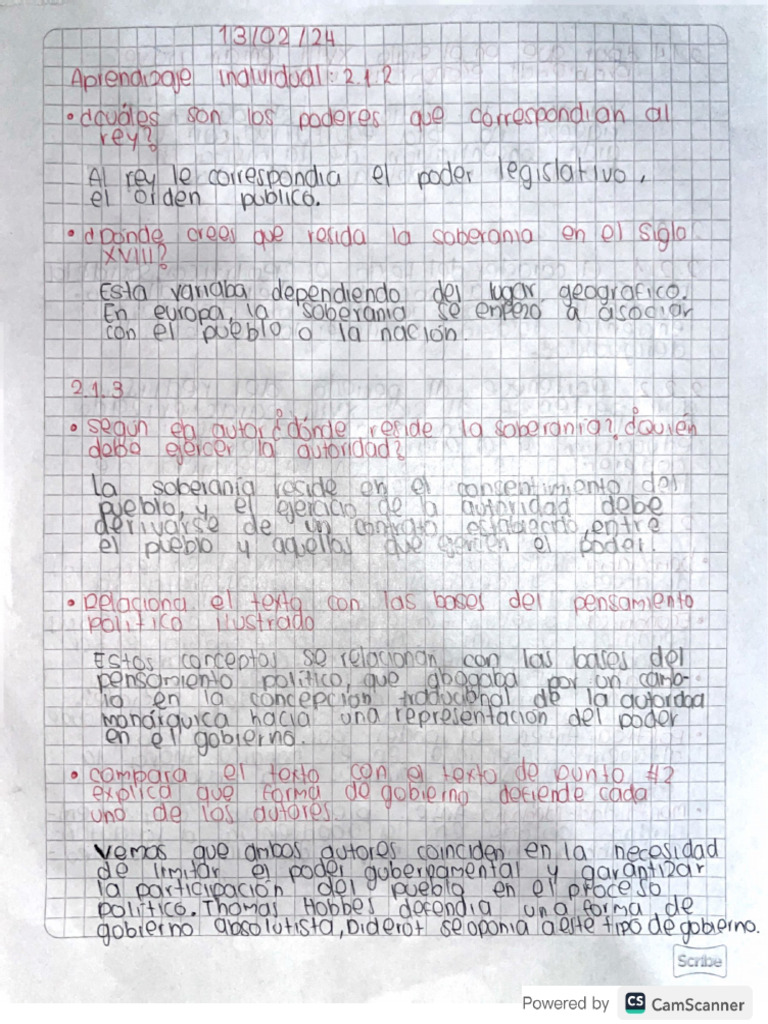 13/02/24
Aprendizaje individual: 2.1.2
• ¿cuáles son los poderes que correspondian al
rey?
Al rey le correspondia el poder legislativo,
el orden publico.
• ¿Donde crees que resida la soberania en el siglo
XVIII?
Esta variaba dependiendo del lugar geografico.
En europa, la soberania se empezo a asociar
con el pueblo o la nación.
2.1.3
• segun el autor ¿dónde reside la soberania? ¿Quién
debe ejercer la autoridad?
La soberanía reside en el consentimiento del
pueblo, y el ejercicio de la autoridad debe
derivarse de un contrato establecido, entre
el pueblo y aquellos que ejercen el poder.
• Relaciona el texto con las bases del pensamiento
politico ilustrado
Estos conceptos se relacionan con las bases del
pensamiento político, que abogaba por un camb-
io en la concepción tradicional de la autorida
monárquica hacia una representacion del poder
en el gobierno.
• compara el texto con el texto de punto #2
explica que forma de gobierno defiende cada
uno de los autores.
Vemos que ambos autores coinciden en la necesidad
de limitar el poder gubernamental y garantizar
la participación del pueblo en el proceso
político. Thomas Hobbes defendia una forma de
gobierno absolutista, Diderot se oponia a este tipo de gobierno.
Scribe
Powered by CS CamScanner